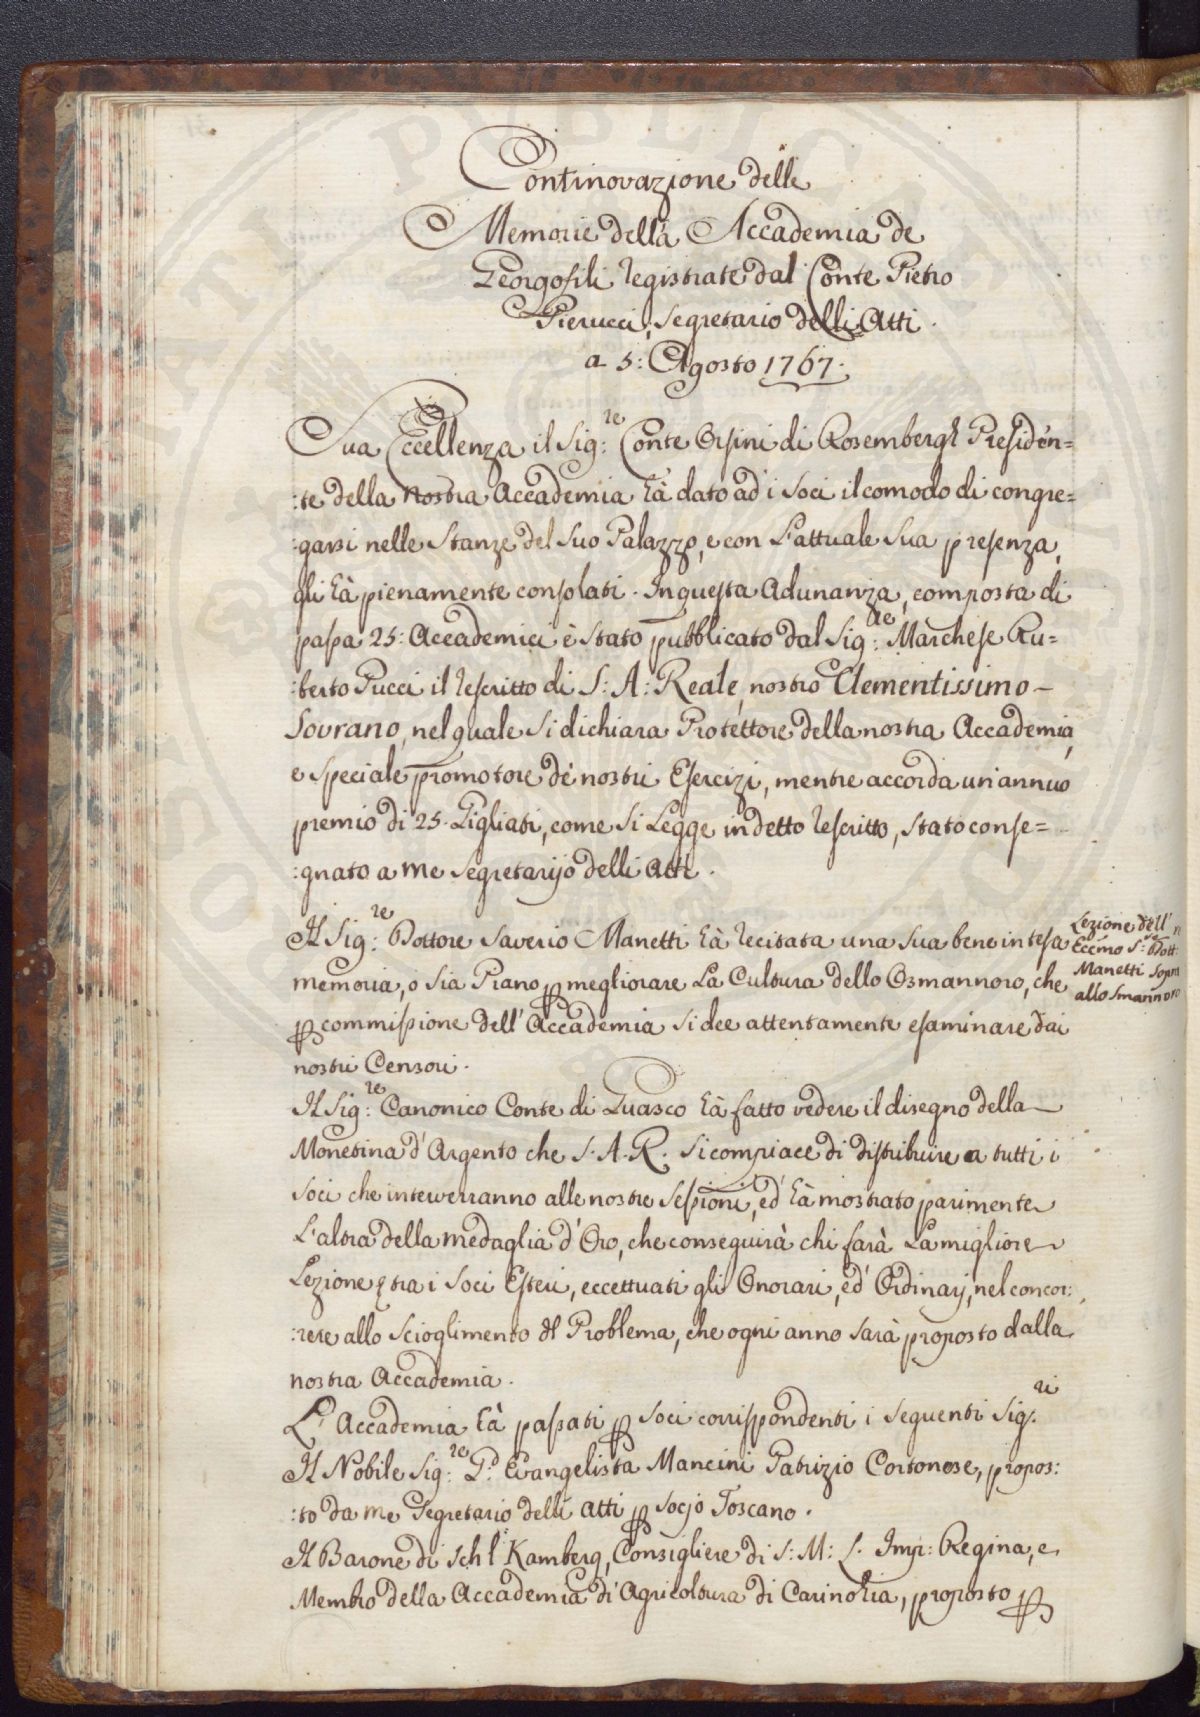 Continovazione delle
Memorie della Accademia de
Georgofili registrate dal Conte Pietro
Pierucci, Segretario delli Atti.
a 5: Agosto 1767.
Sua Eccellenza il Sig:re Conte Orsini di Rosembergh Presiden=
:te della nostra Accademia hà dato ad i Soci il comodo di congre=
:garsi nelle Stanze del Suo Palazzo, e con l'attuale Sua presenza,
gli hà pienamente consolati. In questa Adunanza, composta di
passa 25: Accademici è stato pubblicato dal Sig:re Marchese Ru=
:berto Pucci il rescritto di S: A: Reale, nostro Clementissimo-
Sovrano, nel quale Si dichiara Protettore della nostra Accademia,
e speciale promotore dè nostri Esercizi, mentre accorda un'annuo
premio di 25. Gigliati, come Si Legge in detto rescritto, stato conse=
:gnato a me Segretarijo delli Atti.
Il Sig:re Dottore Saverio Manetti hà recitata una Sua bene intesa
memoria, o Sia Piano ꝑ megliorare La Cultura dello Osmannoro, che
ꝑ commissione dell'Accademia Si dee attentamente esaminare dai
nostri Censori.
Lezione dell'
Eccmo S:re Dott:
Manetti Sopra
allo Smannoro
Il Sig:re Canonico Conte di Guasco hà fatto vedere il disegno della
Monetina d'Argento che S. A. R. Si compiace di distribuire a tutti i
Soci che interverranno alle nostre Sessioni, ed hà mostrato parimente
L'altra della medaglia d'Oro, che conseguirà chi farà La migliore
Lezione tra i Soci Esteri, eccettuati gli Onorari, ed Ordinarj, nel concor:
:rere allo Scioglimento dl Problema, che ogni anno Sarà proposto dalla
nostra Accademia.
L'Accademia hà passati ꝑ Soci corrispondenti i Seguenti Sig:ri
Il Nobile Sig:re P: Evangelista Mancini Patrizio Cortonese, propos:
:to da me Segretario delli Atti ꝑ Socjo Toscano.
Il Barone di Schl Kamberg, Consigliere di S: M: L. Imp: Regina, e
Membro della Accademia di Agricoltura di Carinthia, proposto ꝑ